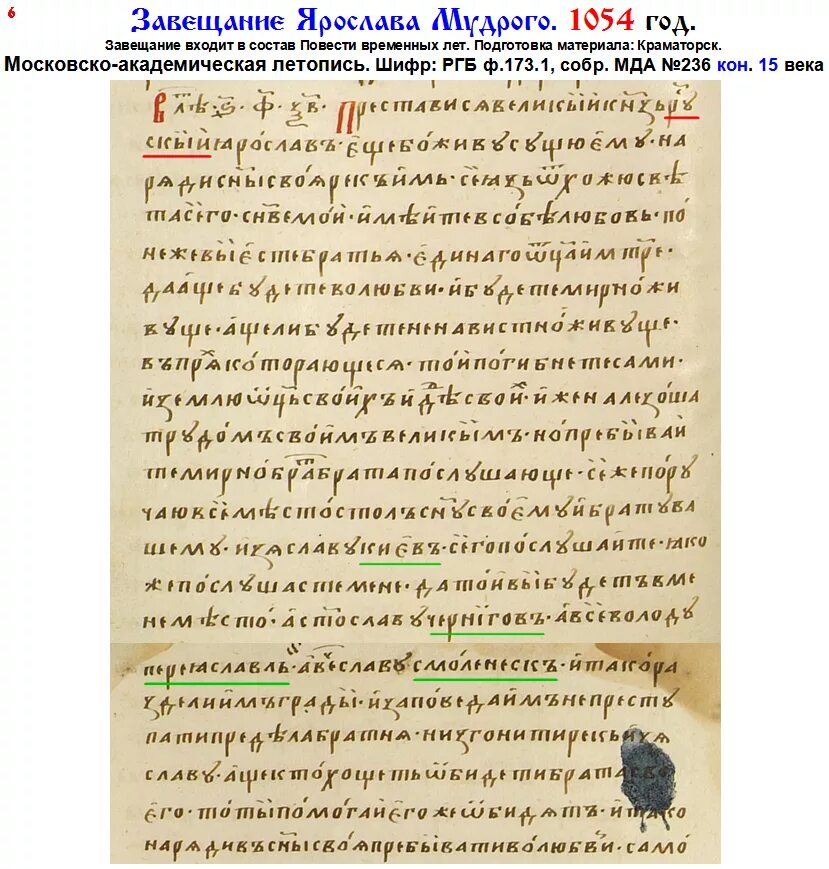 6
Завещание Ярослава Мудрого. 1054 год.
Завещание входит в состав Повести временных лет. Подготовка материала: Краматорск.
Московско-академическая летопись. Шифр: РГБ ф.173.1, собр. МДА №236 кон. 15 века
В лѣт҃ ҂ѕ҃ · ф҃ · ѯ҃в · Преставися великыи кн҃ѕь ру
скыи ꙗрославъ · еще бо живу сущю ему · на
ряди сн҃ы своя рекъ имъ · се азъ ѿхожю свѣ
та сего · сн҃ве мои · имѣите в собѣ любовь · по
неже вы есте братья · единаго ѿц҃а и м҃тре ·
да аще будете в олюбви · и будете мирно жи
вуще · аще ли будете ненавистно живуще ·
въ пря которающеся · то и погибнете сами ·
и землю ѿц҃ь своихъ и дѣ свои · иже налезоша
трудомъ своимъ великымъ · но пребываи
те мирно бра брата послушающе · се же пору
чаю в себе мѣсто столъ сн҃у своему и брату ва
шему · изяславу киевъ · сего послушаите · ꙗко
же послушасте мене · да тои вы будетъ в ме
не мѣсто · а ст҃ославу чернiговъ · а всеволоду
переꙗславль · а вѧчеславу смоленескъ · и тако ра
здели имъ грады · и заповеда имъ не престу
пати предѣла братня · ни изгонити рекъ изя
славу · аще кто хощеть ѡбидети брата сво
его · то ты помогаи его же ѡбидятъ · и тако
наряди въ сн҃ы своя пребывати в олюбви · само